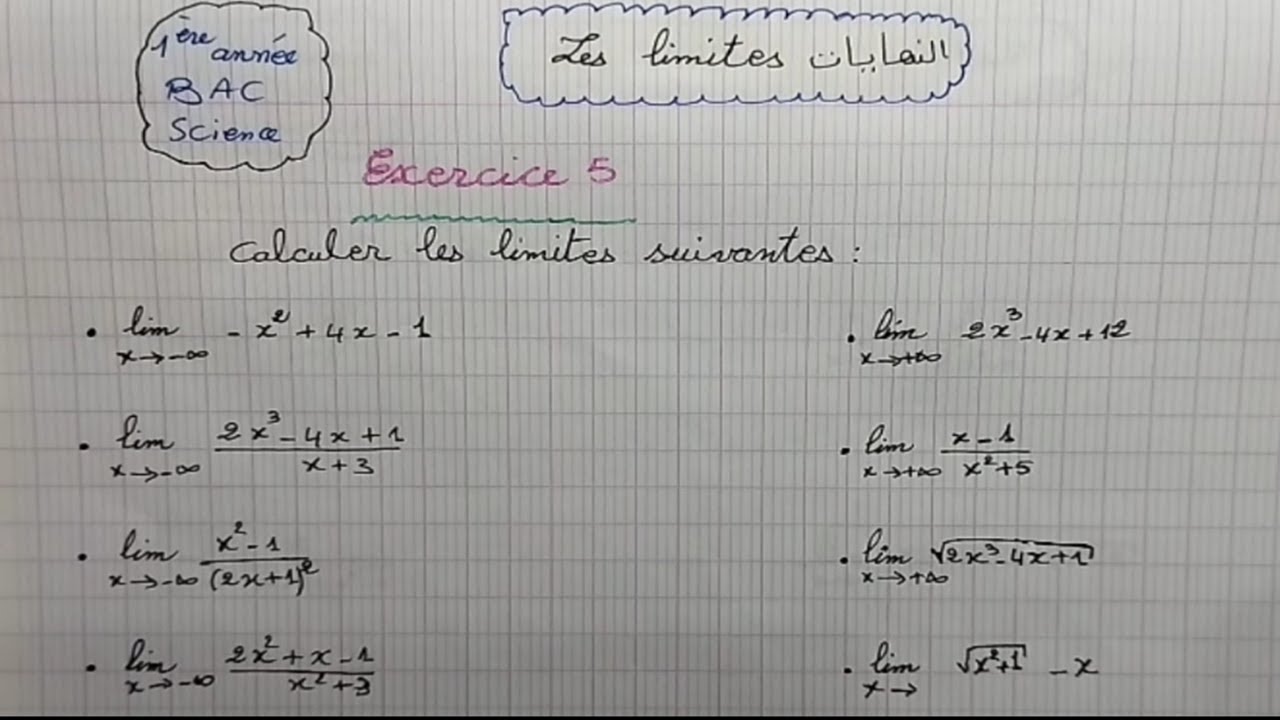 1ère année
BAC
Science
Les limites النهايات
Exercice 5
Calculer les limites suivantes :
• lim x→-∞ -x² + 4x - 1
• lim x→+∞ 2x³ - 4x + 12
• lim x→-∞ (2x³ - 4x + 1)/(x + 3)
• lim x→+∞ (x - 1)/(x² + 5)
• lim x→-∞ (x² - 1)/(2x + 1)²
• lim x→+∞ √(2x³ - 4x + 1)
• lim x→-∞ (2x² + x - 1)/(x² + 3)
• lim x→ √(x² + 1) - x